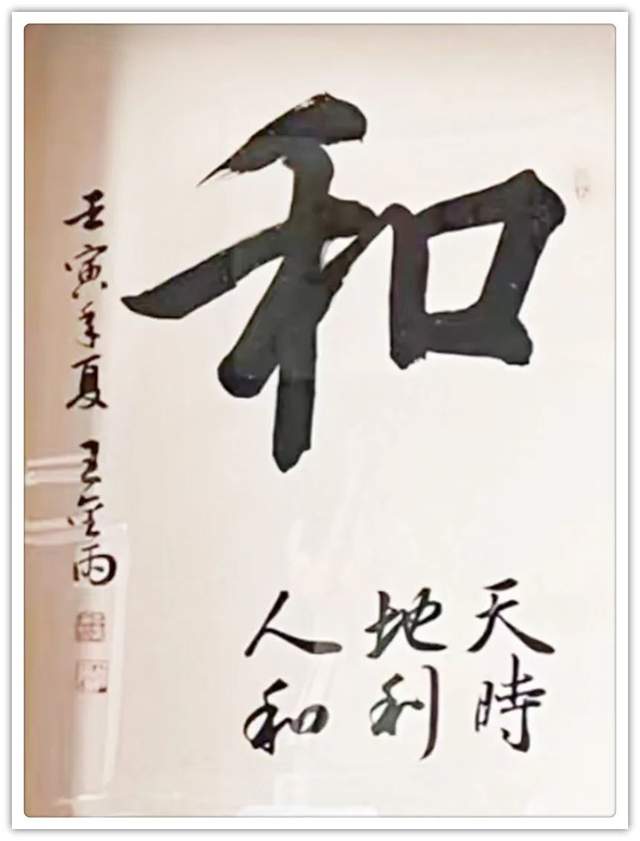 和
天時
地利
人和
壬寅年夏 王金丙